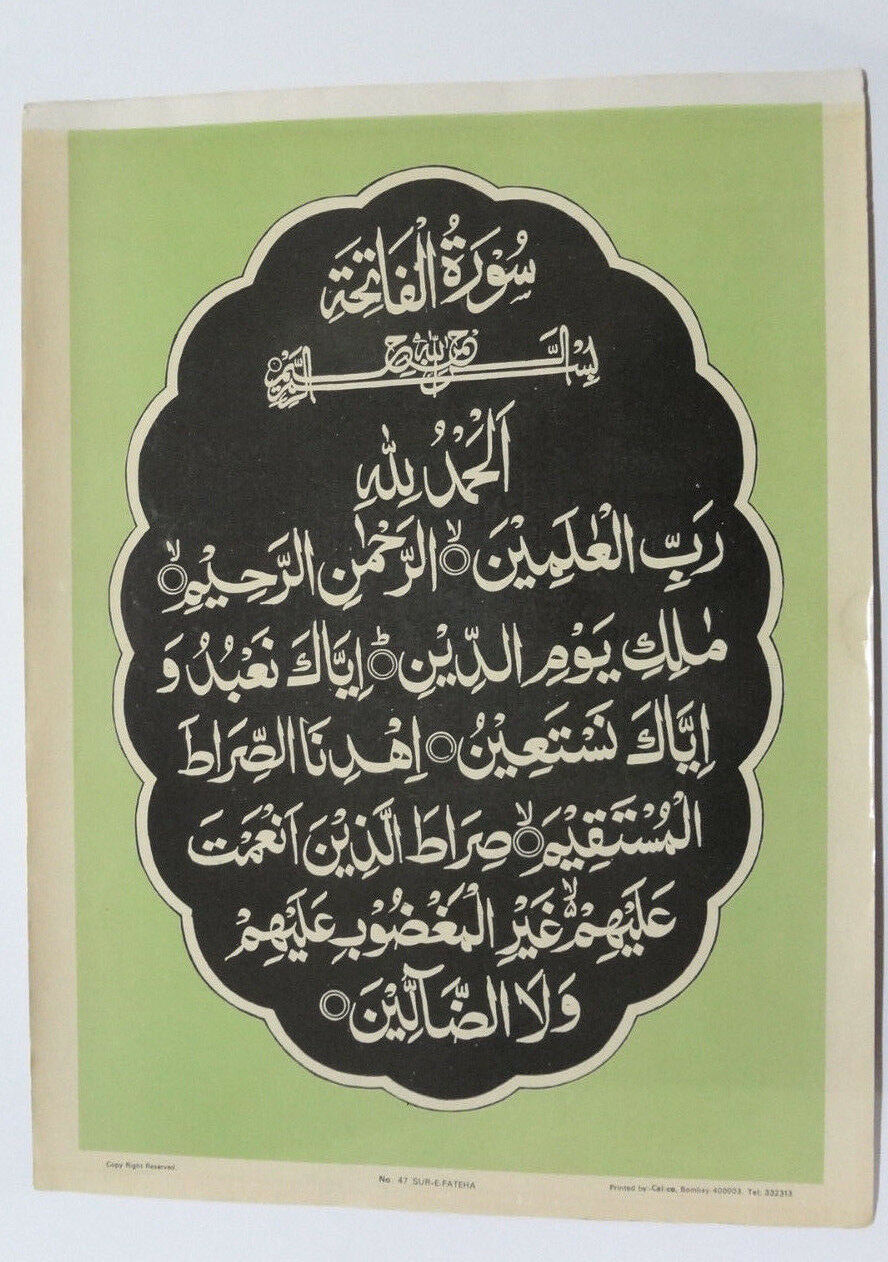 سُوْرَةُ الْفَاتِحَةِ
بِسْمِ اللهِ الرَّحْمٰنِ الرَّحِيْمِ
اَلْحَمْدُ لِلهِ
رَبِّ الْعٰلَمِيْنَ ۙ الرَّحْمٰنِ الرَّحِيْمِ ۙ
مٰلِكِ يَوْمِ الدِّيْنِ ؕ اِيَّاكَ نَعْبُدُ وَ
اِيَّاكَ نَسْتَعِيْنُ ○ اِهْدِنَا الصِّرَاطَ
الْمُسْتَقِيْمَ ۙ صِرَاطَ الَّذِيْنَ اَنْعَمْتَ
عَلَيْهِمْ ۙ غَيْرِ الْمَغْضُوْبِ عَلَيْهِمْ
وَلَا الضَّآلِّيْنَ ○
Copy Right Reserved.
No. 47 SUR-E-FATEHA
Printed by:-Cal-co, Bombay-400003. Tel: 332313